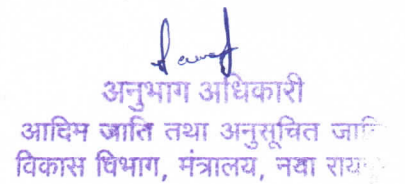 अनुभाग अधिकारी
आदिम जाति तथा अनुसूचित
विकास विभाग, मंत्रालय, नवा